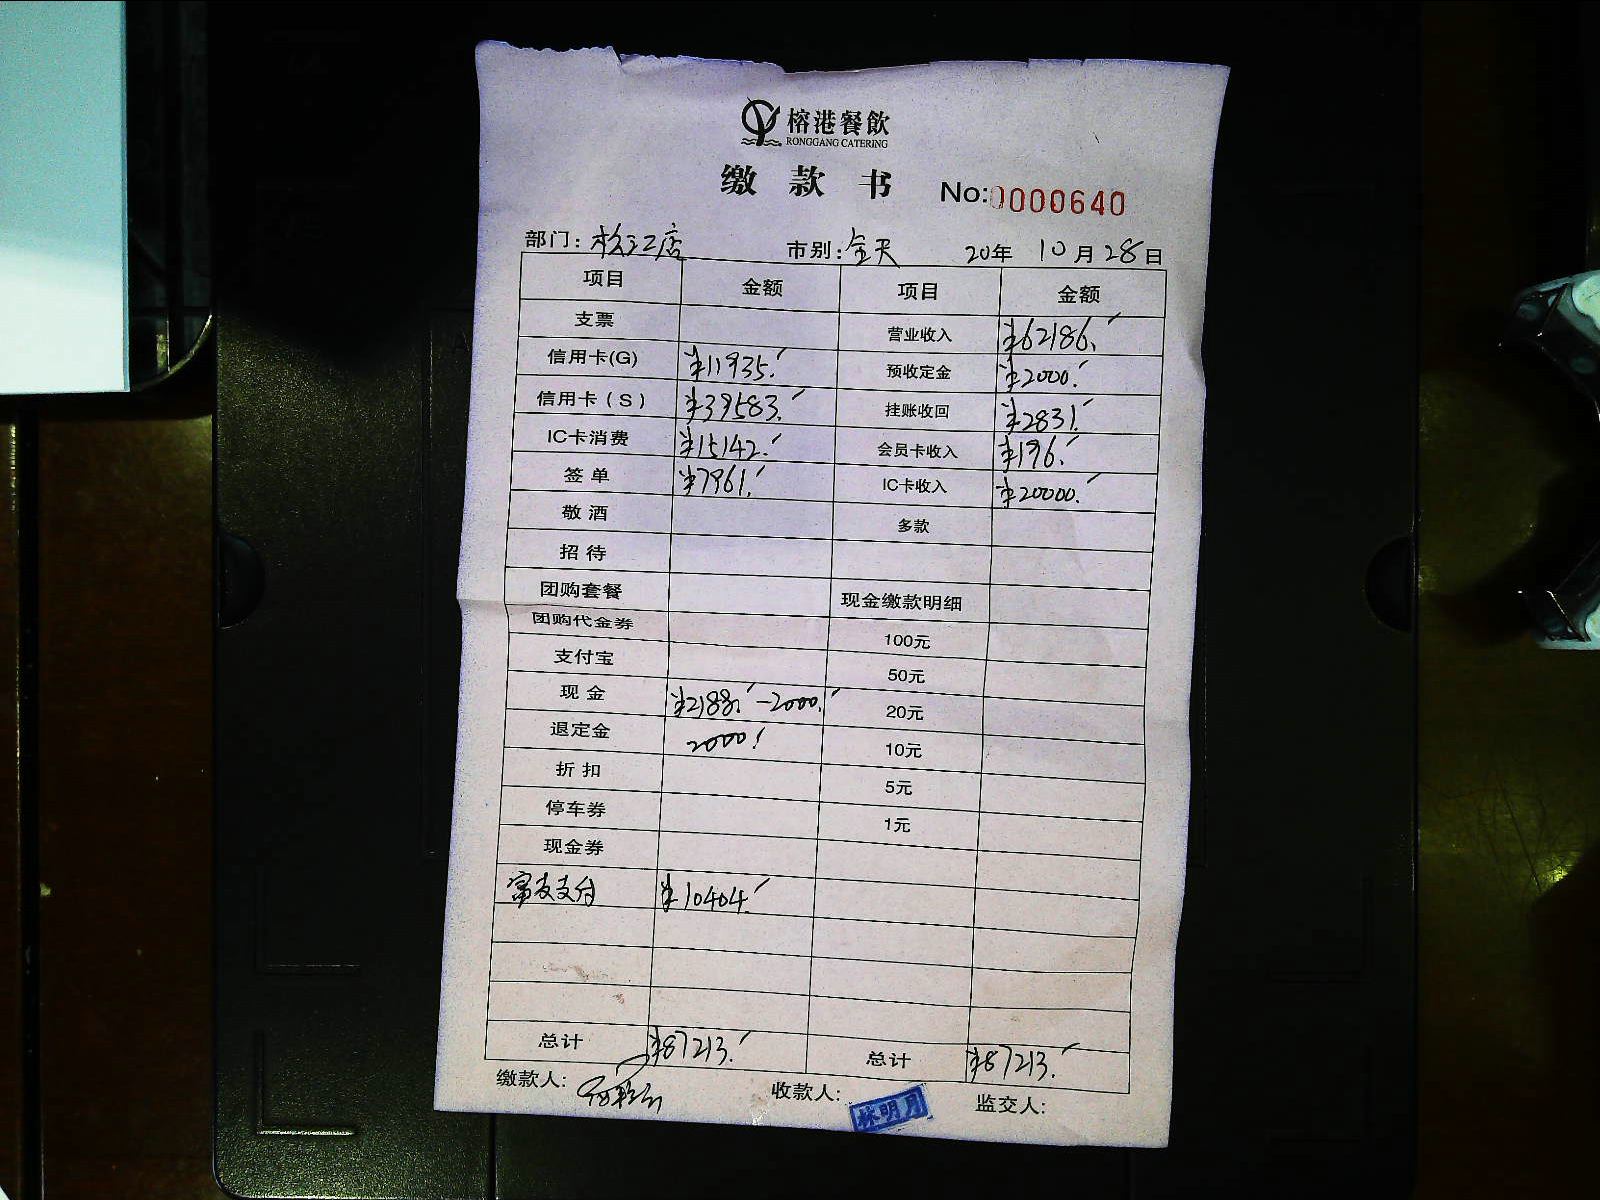 榕港餐飲
RONGGANG CATERING
缴 款 书 No:0000640
部门: 松江店 市别: 全天 2020年 10月28日
项目 金额 项目 金额
支票 营业收入 ¥62186.
信用卡(G) ¥11935. 预收定金 ¥2000.
信用卡(S) ¥39583. 挂账收回 ¥2831.
IC卡消费 ¥15142. 会员卡收入 ¥196.
签单 ¥7961. IC卡收入 ¥20000.
敬酒 多款
招待
团购套餐 现金缴款明细
团购代金券 100元
支付宝 50元
现金 ¥2188. -2000. 20元
退定金 2000. 10元
折扣 5元
停车券 1元
现金券
富友支付 ¥10404.
总计 ¥87213. 总计 ¥87213.
缴款人: 收款人: 林明月 监交人: